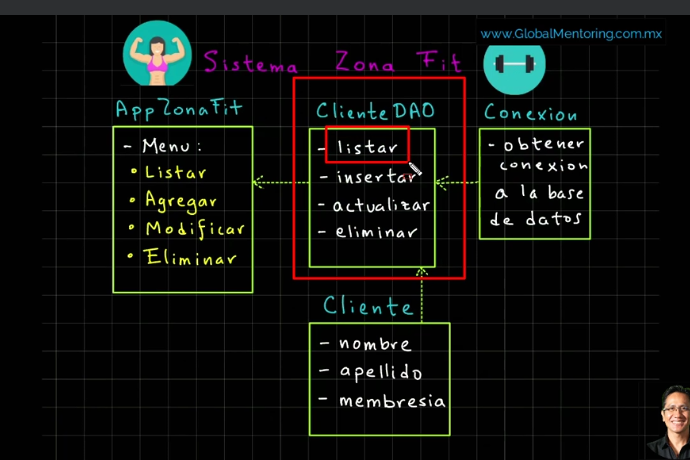 www.GlobalMentoring.com.mx
Sistema Zona Fit
AppZonaFit
- Menu:
• Listar
• Agregar
• Modificar
• Eliminar
ClienteDAO
- listar
- insertar
- actualizar
- eliminar
Conexion
- obtener
conexion
a la base
de datos
Cliente
- nombre
- apellido
- membresia